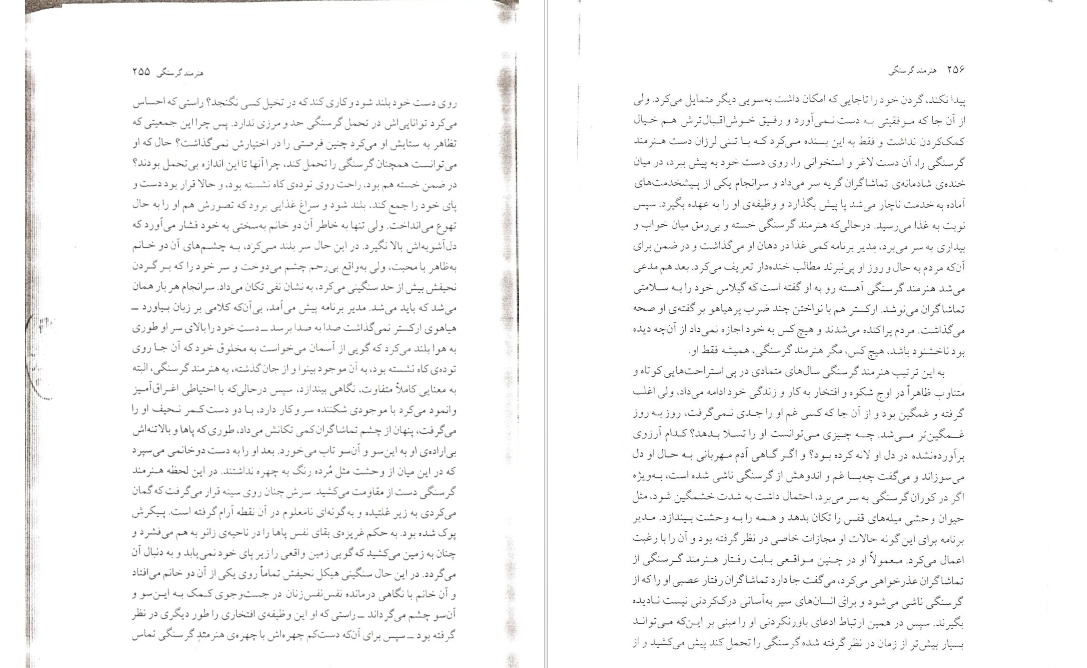 هنرمند گرسنگی ۲۵۵
روی دست خود بلند شود و کاری کند که در تخیل کسی نگنجد؟ راستی که احساس
می‌کرد توانایی‌اش در تحمل گرسنگی حد و مرزی ندارد. پس چرا این جمعیتی که
تظاهر به ستایش او می‌کرد چنین فرصتی را در اختیارش نمی‌گذاشت؟ حال که او
می‌توانست همچنان گرسنگی را تحمل کند، چرا آنها تا این اندازه بی‌تحمل بودند؟
در ضمن خسته هم بود، راحت روی توده‌ی کاه نشسته بود، و حالا قرار بود دست و
پای خود را جمع کند، بلند شود و سراغ غذایی برود که تصورش هم او را به حال
تهوع می‌انداخت. ولی تنها به خاطر آن دو خانم به‌سختی به خود فشار می‌آورد که
دل‌آشوبه‌اش بالا نگیرد. در این حال سر بلند می‌کرد، به چشم‌های آن دو خانم
به‌ظاهر با محبت، ولی به‌واقع بی‌رحم چشم می‌دوخت و سر خود را که بر گردن
نحیفش بیش از حد سنگینی می‌کرد، به نشان نفی تکان می‌داد. سرانجام هر بار همان
می‌شد که باید می‌شد. مدیر برنامه پیش می‌آمد، بی‌آن‌که کلامی بر زبان بیاورد ــ
هیاهوی ارکستر نمی‌گذاشت صدا به صدا برسد ــ دست خود را بالای سر او طوری
به هوا بلند می‌کرد که گویی از آسمان می‌خواست به مخلوق خود که آن جا روی
توده‌ی کاه نشسته بود، به آن موجود بینوا و از جان‌گذشته، به هنرمند گرسنگی، البته
به معنایی کاملاً متفاوت، نگاهی بیندازد، سپس درحالی‌که با احتیاطی اغراق‌آمیز
وانمود می‌کرد با موجودی شکننده سر و کار دارد، با دو دست کمر نحیف او را
می‌گرفت، پنهان از چشم تماشاگران کمی تکانش می‌داد، طوری که پاها و بالاتنه‌اش
بی‌اراده‌ی او به این‌سو و آن‌سو تاب می‌خورد. بعد او را به دست دو خانمی می‌سپرد
که در این میان از وحشت مثل مُرده رنگ به چهره نداشتند. در این لحظه هنرمند
گرسنگی دست از مقاومت می‌کشید. سرش چنان روی سینه قرار می‌گرفت که گمان
می‌کردی به زیر غلتیده و به‌گونه‌ای نامعلوم در آن نقطه آرام گرفته است. پیکرش
پوک شده بود. به حکم غریزه‌ی بقای نفس پاها را در ناحیه‌ی زانو به هم می‌فشرد و
چنان به زمین می‌کشید که گویی زمین واقعی را زیر پای خود نمی‌یابد و به دنبال آن
می‌گردد. در این حال سنگینی هیکل نحیفش تماماً روی یکی از آن دو خانم می‌افتاد
و آن خانم با نگاهی درمانده نفس‌نفس‌زنان در جست‌وجوی کمک به این‌سو و
آن‌سو چشم می‌گرداند ــ راستی که او این وظیفه‌ی افتخاری را طور دیگری در نظر
گرفته بود ــ سپس برای آن‌که دست‌کم چهره‌اش با چهره‌ی هنرمند گرسنگی تماس
۲۵۶ هنرمند گرسنگی
پیدا نکند، گردن خود را تاجایی که امکان داشت به‌سویی دیگر متمایل می‌کرد. ولی
از آن جا که موفقیتی به دست نمی‌آورد و رفیق خوش‌اقبال‌ترش هم خیال
کمک‌کردن نداشت و فقط به این بسنده می‌کرد که با تنی لرزان دست هنرمند
گرسنگی را، آن دست لاغر و استخوانی را، روی دست خود به پیش ببرد، در میان
خنده‌ی شادمانه‌ی تماشاگران گریه سر می‌داد و سرانجام یکی از پیشخدمت‌های
آماده به خدمت ناچار می‌شد پا پیش بگذارد و وظیفه‌ی او را به عهده بگیرد. سپس
نوبت به غذا می‌رسید. درحالی‌که هنرمند گرسنگی خسته و بی‌رمق میان خواب و
بیداری به سر می‌برد، مدیر برنامه کمی غذا در دهان او می‌گذاشت و در ضمن برای
آن‌که مردم به حال و روز او پی‌نبرند مطالب خنده‌دار تعریف می‌کرد. بعد هم مدعی
می‌شد هنرمند گرسنگی آهسته رو به او گفته است که گیلاس خود را به سلامتی
تماشاگران می‌نوشد. ارکستر هم با نواختن چند ضرب پرهیاهو بر گفته‌ی او صحه
می‌گذاشت. مردم پراکنده می‌شدند و هیچ‌کس به خود اجازه نمی‌داد از آن‌چه دیده
بود ناخشنود باشد، هیچ کس، مگر هنرمند گرسنگی، همیشه فقط او.
به این ترتیب هنرمند گرسنگی سال‌های متمادی در پی استراحت‌هایی کوتاه و
متناوب ظاهراً در اوج شکوه و افتخار به کار و زندگی خود ادامه می‌داد، ولی اغلب
گرفته و غمگین بود و از آن جا که کسی غم او را جدی نمی‌گرفت، روز به روز
غمگین‌تر می‌شد. چه چیزی می‌توانست او را تسلا بدهد؟ کدام آرزوی
برآورده‌نشده در دل او لانه کرده بود؟ و اگر گاهی آدم مهربانی به حال او دل
می‌سوزاند و می‌گفت چه‌بسا غم و اندوهش از گرسنگی ناشی شده است، به‌ویژه
اگر در کوران گرسنگی به سر می‌برد، احتمال داشت به شدت خشمگین شود، مثل
حیوان وحشی میله‌های قفس را تکان بدهد و همه را به وحشت بیندازد. مدیر
برنامه برای این گونه حالات او مجازات خاصی در نظر گرفته بود و آن را با رغبت
اعمال می‌کرد. معمولاً او در چنین مواقعی بابت رفتار هنرمند گرسنگی از
تماشاگران عذرخواهی می‌کرد، می‌گفت جا دارد تماشاگران رفتار عصبی او را که از
گرسنگی ناشی می‌شود و برای انسان‌های سیر به‌آسانی درک‌کردنی نیست نادیده
بگیرند. سپس در همین ارتباط ادعای باورنکردنی او را مبنی بر این‌که می‌تواند
بسیار بیش‌تر از زمان در نظر گرفته شده گرسنگی را تحمل کند پیش می‌کشید و از